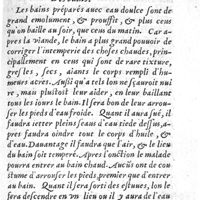 Les bains préparés auec eau douce sont de
grand emolument, & prouffit, & plus ceux
qu'on baille au soir, que ceus du matin. Car a-
pres la viande, le bain a plus grand pouuoir de
corriger l'intemperie des choses chaudes, prin-
cipallement en ceus qui sont de rare tixture,
gresles, secs, aiants le corps rempli d'hu-
meurs acres. Aussi qu'a tels bon ne sçauroit nui-
re, mais plustost leur aider, en leur baillant
tous les iours le bain. Il sera bon de leur arrou-
ser les pieds d'eau froide. Quant il aura sué, il
faudra ietter pleins seaus d'eau tiede dessus, a-
pres faudra oindre tout le corps d'huile, &
d'eau. Dauantage il faudra que l'air, & le lieu
du bain soit temperé. Apres l'onction le malade
pourra entrer au bain chaud. Aucuns ont de cou-
stume d'arrouser les pieds premier que d'entrer
au bain. Quant il sera sorti des estuues, lon le
fera descendre en vn lieu ou il y aura de l'eau